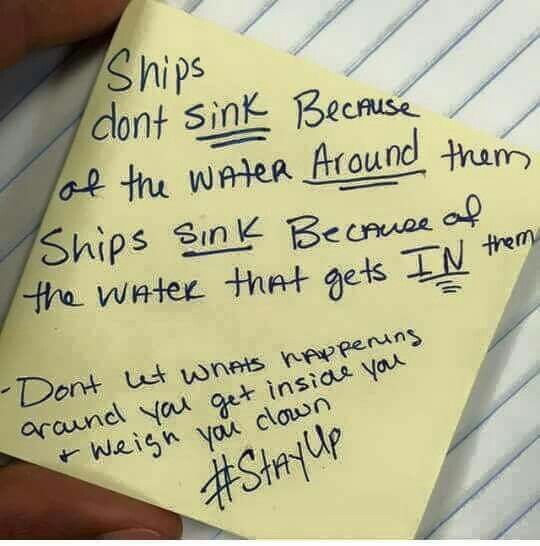 Ships
dont Sink Because
of the WAteR Around them
Ships Sink Because of
the WAteR thAt gets IN them
- Dont let whAts hAppening
around you get inside you
+ weigh you down
#StAyUp